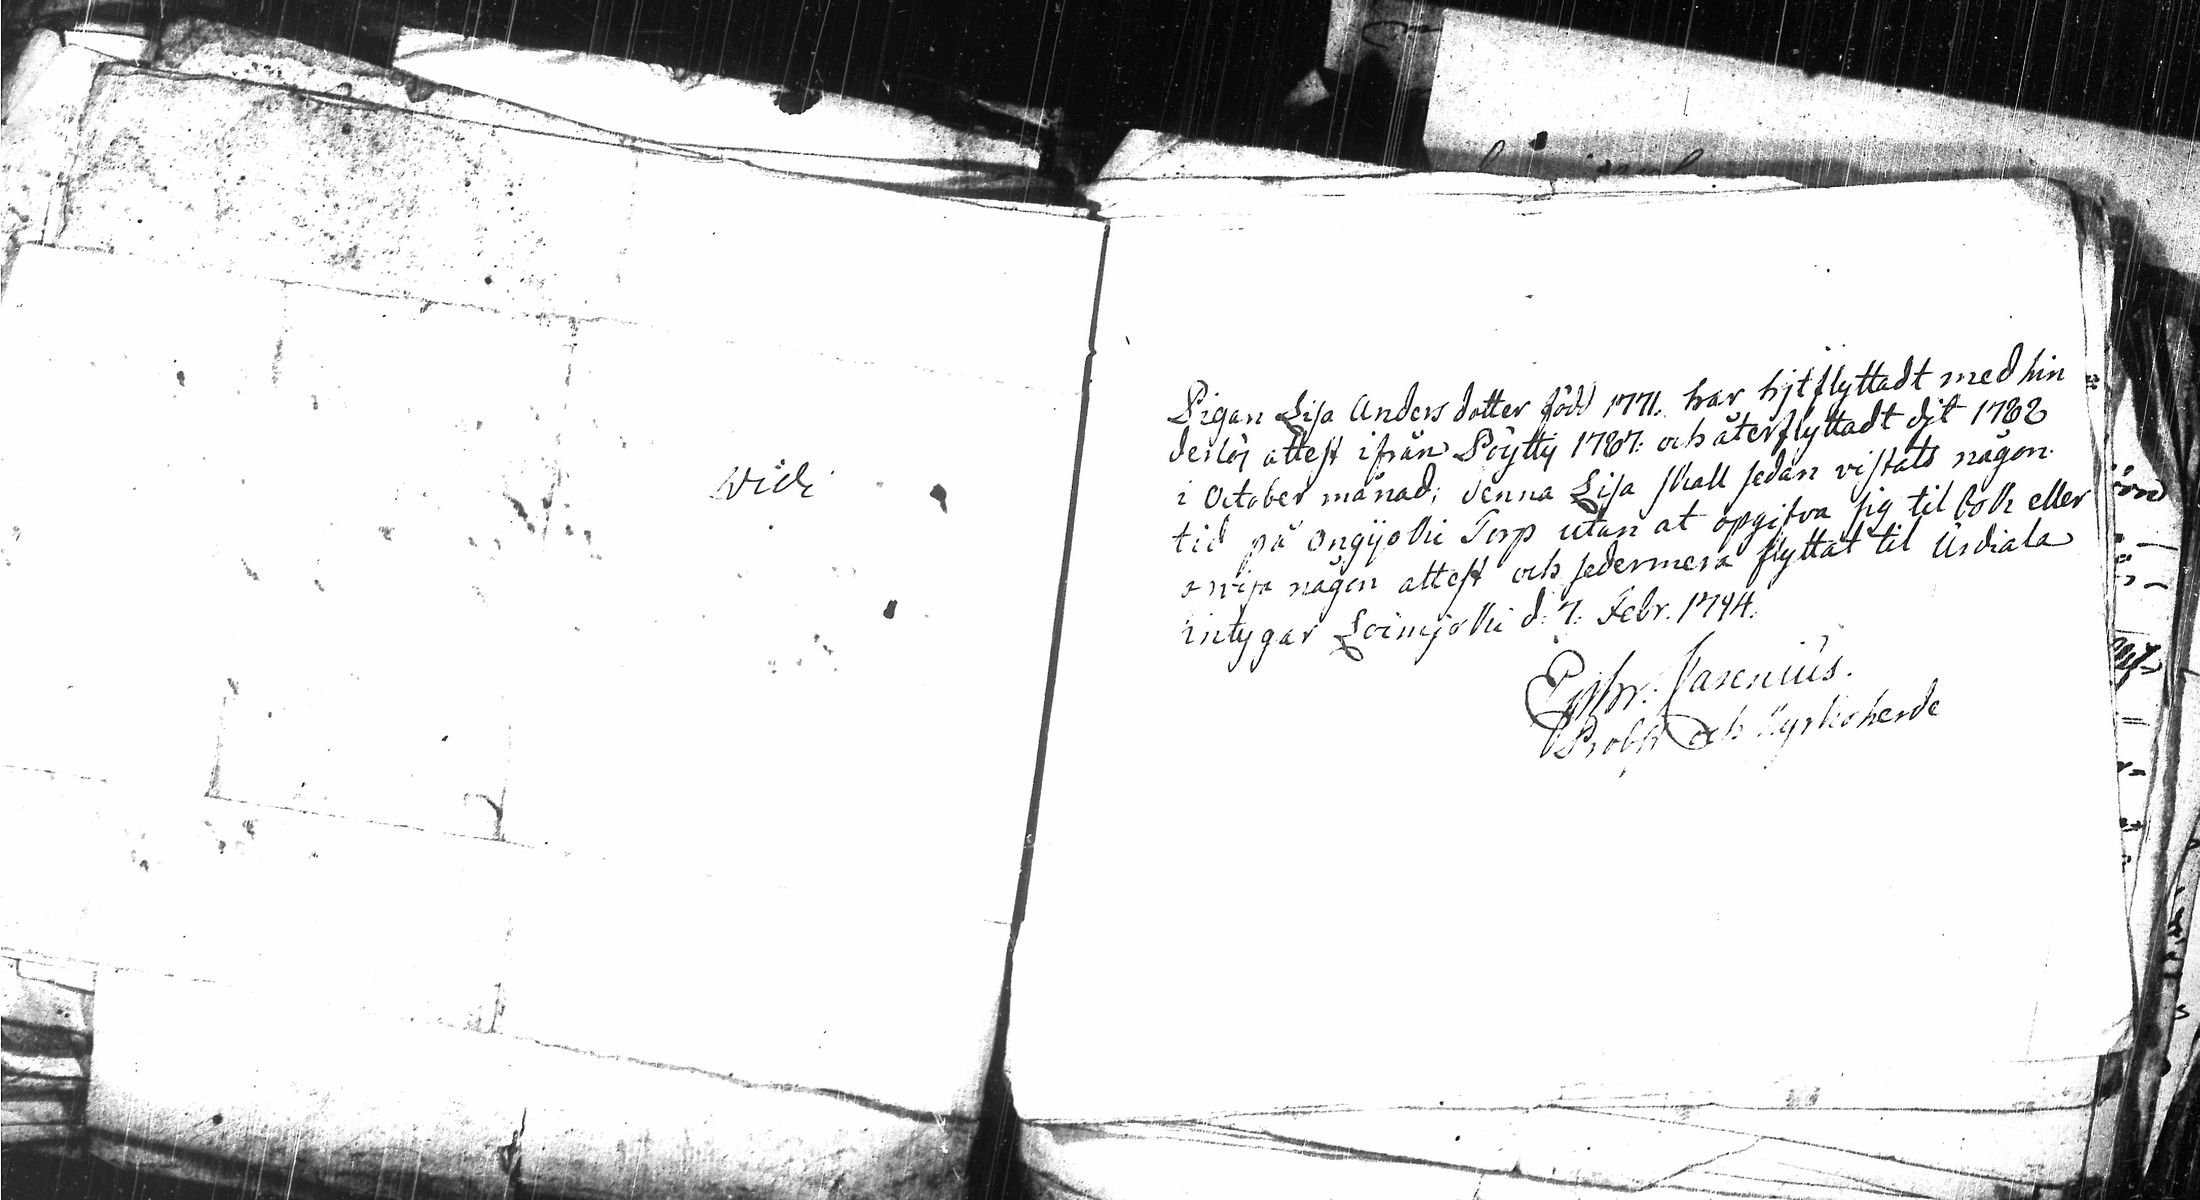 Vidi
Pigan Lisa Andersdotter född 1771. har hjtflyttadt med hin
derlös attest ifrån Pöytty 1787. och återflyttadt djt 1788
i October månad; denna Lisa skall sedan vistats någon
tid på Ongijoki Torp utan at opgifva sig til bok eller
wisa någon attest och sedermera flyttat til Urdiala
intygar Loimjoki d. 7. Febr. 1794.
Ephr. Carenius.
Probst och Kyrkoherde